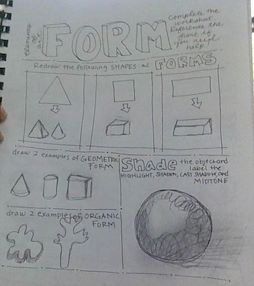 elements of art
FORM
Complete the
worksheet.
Reference the
if
you need
help.
Redraw the following SHAPES as FORMS
draw 2 examples of GEOMETRIC
FORM
Shade the object and
label the
HIGHLIGHT, SHADOW, CAST SHADOW, and
MIDTONE
draw 2 examples of ORGANIC
FORM